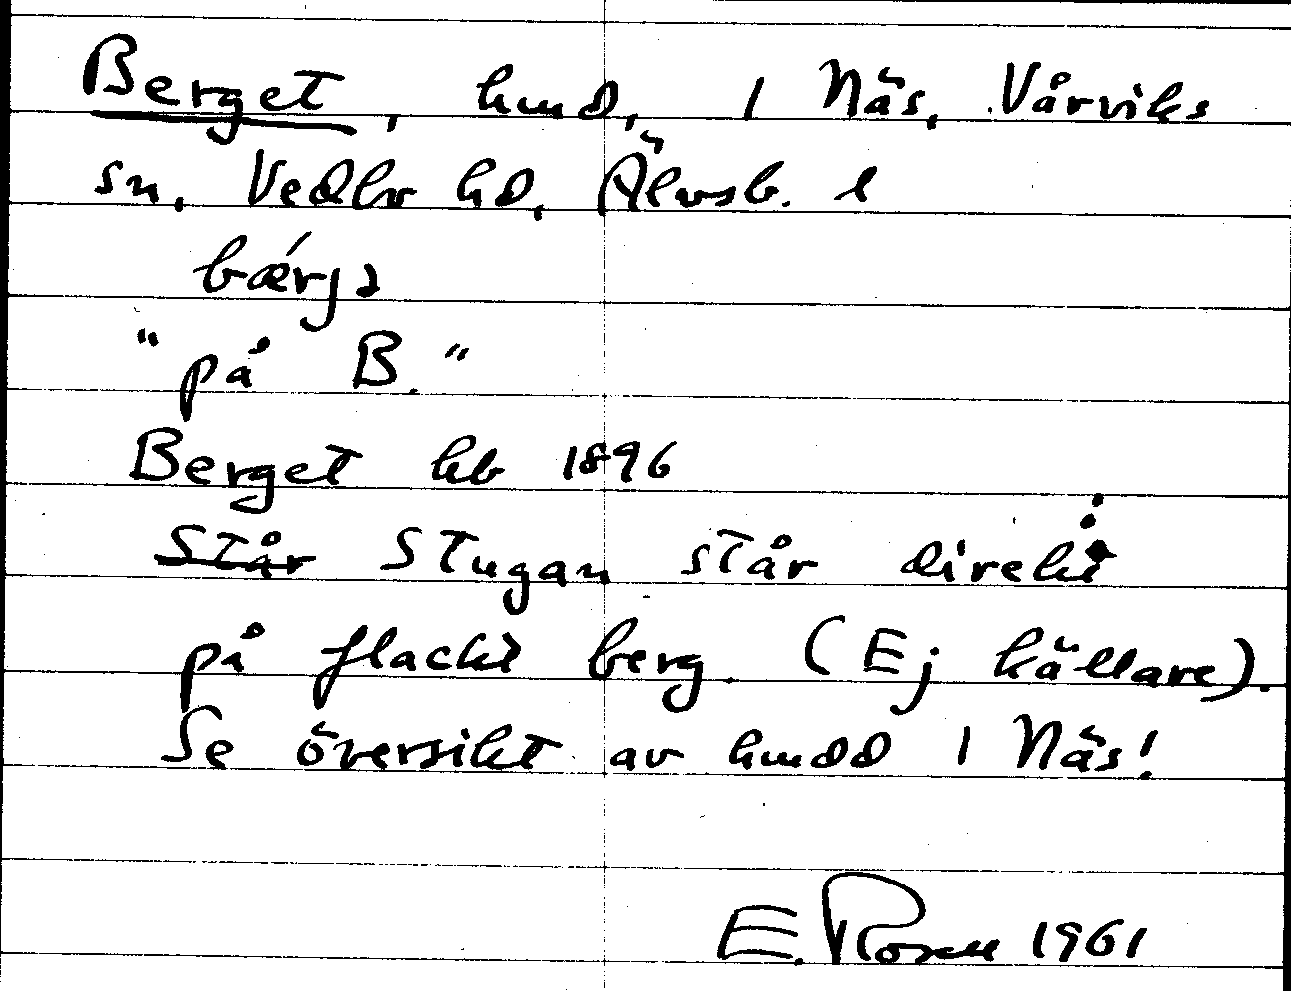 Berget, hmd, 1 Näs, Vårviks
sn, Vedbo hd, Älvsb. l
bǽrjə
"på B."
Berget hb 1896
Står Stugan står direkt
på flackt berg. (Ej källare).
Se översikt av hmdd 1 Näs!
E. Rosén 1961